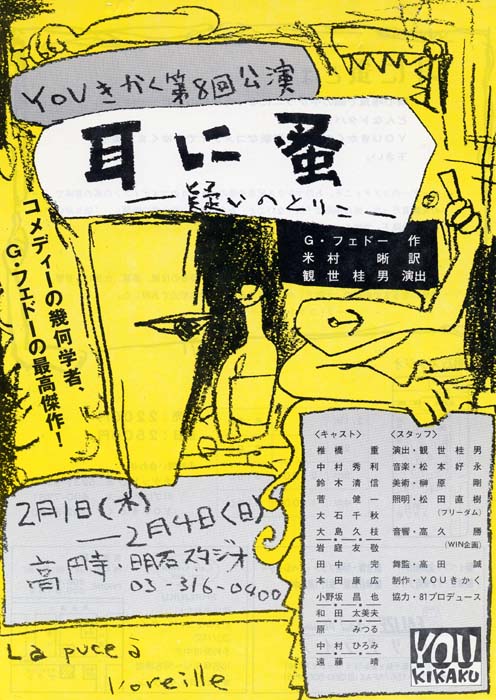 YOUきかく第8回公演
耳に蚤
―疑いのとりこ―
G・フェドー 作
米村 晰 訳
観世桂男 演出
コメディーの幾何学者、
G・フェドーの最高傑作!
2月1日(木)
―2月4日(日)
高円寺・明石スタジオ
03-316-0400
〈キャスト〉
椎橋 重
中村秀利
鈴木清信
菅 健一
大石千秋
大島久枝
岩庭友敬
田中 完
本田康広
小野坂昌也
和田太美夫
原 みつる
中村ひろみ
遠藤 晴
〈スタッフ〉
演出・観世桂男
音楽・松本好永
美術・榊原 剛
照明・松田直樹
(フリーダム)
音響・高久 勝
(WIN企画)
舞監・高田 誠
制作・YOUきかく
協力・81プロデュース
YOU
KIKAKU
La puce à
l'oreille